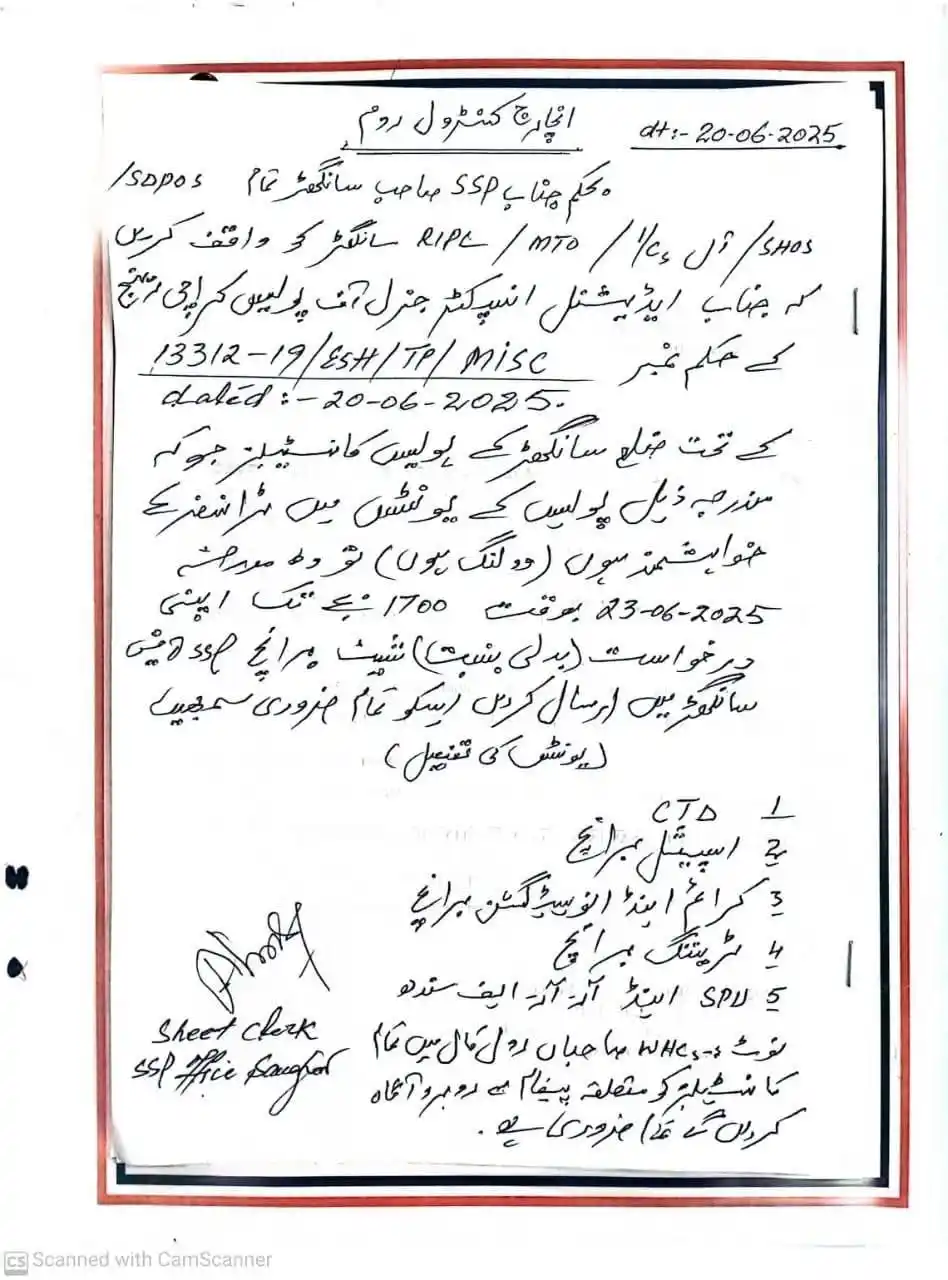 انچارج کنٹرول روم
dt:- 20-06-2025
بحکم جناب SSP صاحب سانگھڑ تمام SDPOS/
SHOS/ آل I/Cs / MTO / RIPC سانگھڑ کو واقف کریں
کہ جناب ایڈیشنل انسپکٹر جنرل آف پولیس کراچی رینج
کے حکم نمبر 13312-19/ESH/TP/MISC
dated:-20-06-2025.
کے تحت ضلع سانگھڑ کے پولیس کانسٹیبلز جو کہ
مندرجہ ذیل پولیس کے یونٹس میں ٹرانسفر کے
خواہشمند ہوں (وولنگ ہوں) تو وہ مورخہ
23-06-2025 بوقت 1700 بجے تک اپنی
درخواست (بدلی بنسبت) شیٹ برانچ SSP آفیس
سانگھڑ میں ارسال کردیں اسکو تمام ضروری سمجھیں
(یونٹس کی تفصیل)
1 CTD
2 اسپیشل برانچ
3 کرائم اینڈ انویسٹیگیشن برانچ
4 ٹریننگ برانچ
5 SPU اینڈ آر۔آر۔ ایف سندھ
نوٹ WHCs-s صاحبان رول کال میں تمام
کانسٹیبلز کو متعلقہ پیغام سے روبرو آگاہ
کردیں گے ضروری ہے۔
Sheet Clerk
SSP Office Sanghar
CS Scanned with CamScanner